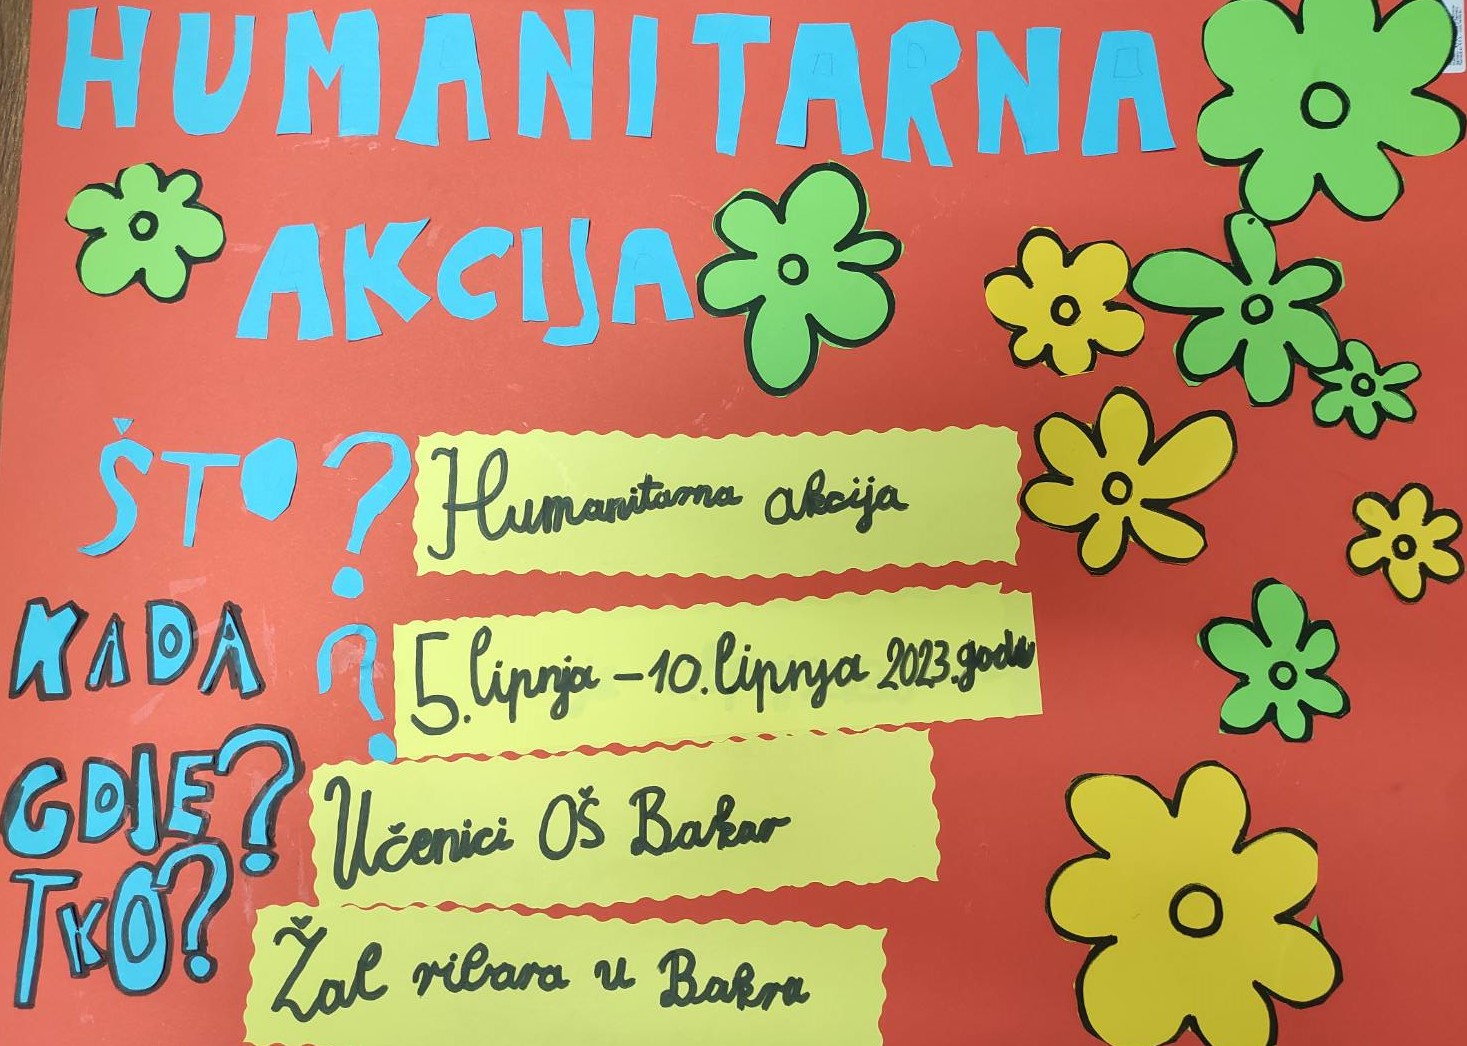 HUMANITARNA
AKCIJA
ŠTO? Humanitarna akcija
KADA? 5. lipnja – 10. lipnja 2023. godi
GDJE? Učenici OŠ Bakar
TKO? Žal ribara u Bakru